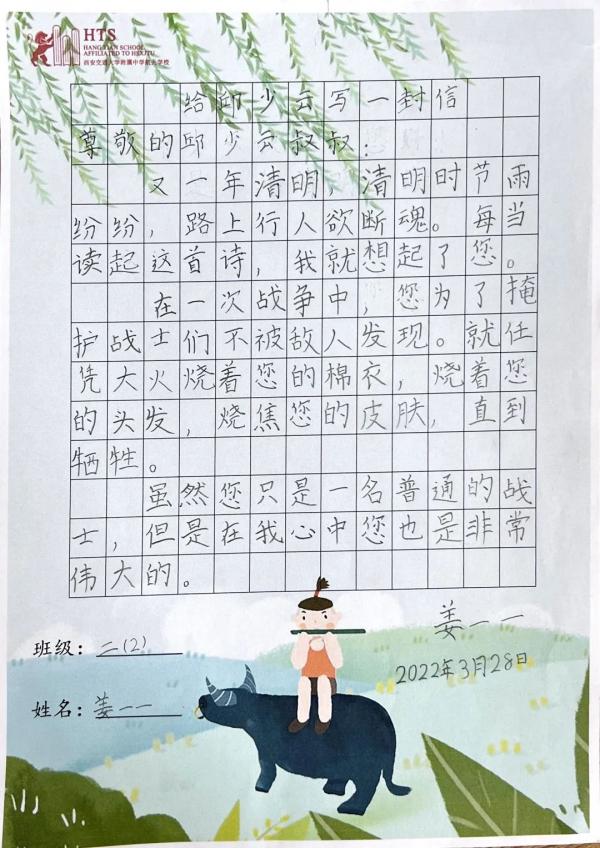 HTS
HANGTIAN SCHOOL
AFFILIATED TO HSXJTU
西安交通大学附属中学航天学校
给邱少云写一封信
尊敬的邱少云叔叔：
又一年清明，清明时节雨
纷纷，路上行人欲断魂。每当
读起这首诗，我就想起了您。
在一次战争中，您为了掩
护战士们不被敌人发现。就任
凭大火烧着您的棉衣，烧着您
的头发，烧焦您的皮肤，直到
牺牲。
虽然您只是一名普通的战
士，但是在我心中您也是非常
伟大的。
姜一一
2022年3月28日
班级：二(2)
姓名：姜一一